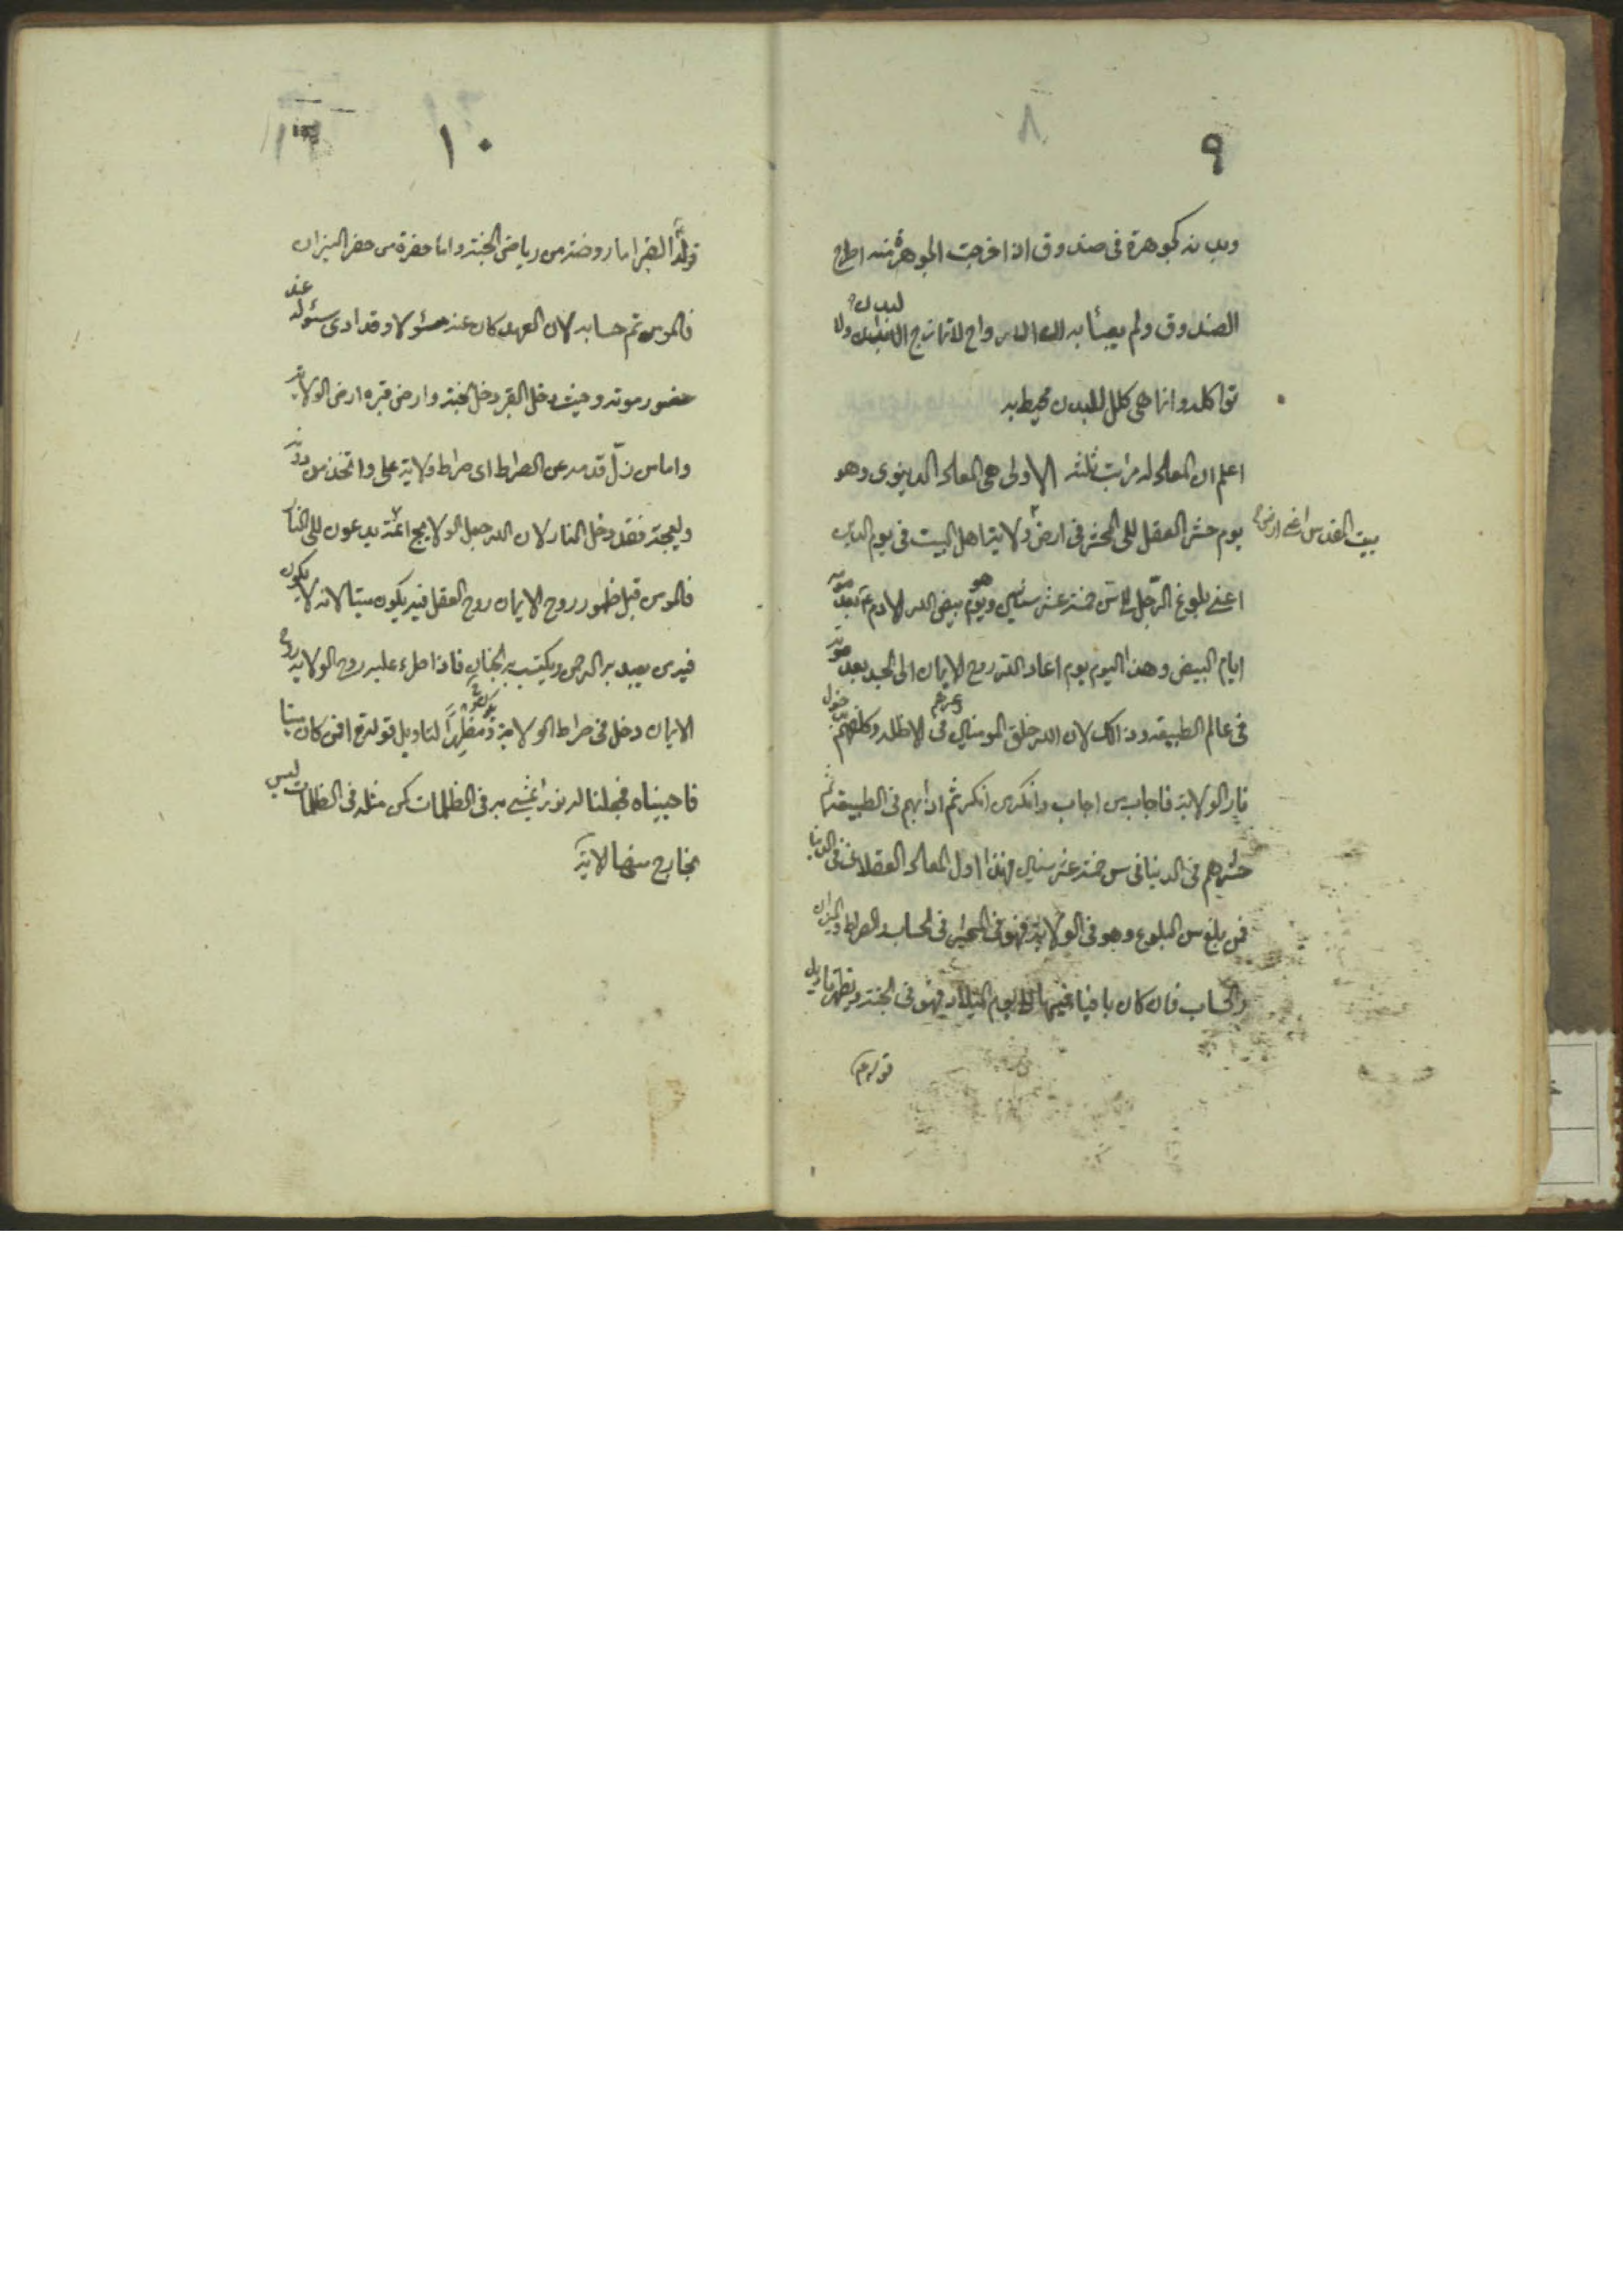 ٩
٨
وبدنه كجوهرة فى صندوق اذا اخرجت الجوهرة منه اطرح
الصندوق ولم يعبأ به ان الارواح لا تمازج البدن ولا
تواكله وانما هى كلل للبدن محيط به
اعلم ان المعاد له مراتب ثلثه الاولى هى المعاد الدينوى وهو
يوم حشر العقل الى المحشر فى ارض ولاية اهل البيت فى يوم الدين
بيت المقدس اعنى ارض
اعنى بلوغ الرجل فى سن خمسة عشر سنين وهو يوم بيض الله لادم بعد موته
ايام البيض وهذا اليوم يوم اعاد الله روح الايمان الى الجسد بعد موته
فى عالم الطبيعه وذالك لان الله خلق المومنين فى الاظله وكلفهم
نار الولاية فاجاب من اجاب وانكر من انكر ثم اذابهم فى الطبيعة ثم
حشرهم فى الدنيا فى سن خمسة عشر سنين فهذا اول المعاد العقلا فى الدنيا
فمن بلغ سن البلوغ وهو فى الولاية فهو فى الحساب الصراط والميزان
والحساب فان كان باقيا فيها الى يوم فهو فى الجنة ويظهر تاويل
قوله
١٠
قوله القبر اما روضة من رياض الجنة واما حفرة من حفر النيران
فالمومن تم حسابه لان العهد كان عنه مسؤلا وقد ادى سئوله عند
حضور موته وحيث دخل القبر دخل الجنة وارض قبره ارض الولاية
واما من زلّ قدمه عن الصراط اى صراط ولاية على واتخذ من دونه
وليجة فقد دخل النار لان الله جعل الولايج ائمة يدعون الى النار
فالمومن قبل ظهور روح الايمان روح العقل فيه يكون ميتا لانه لا يكون
فيه من يعبد به الرحمن ويكتسب به الجنان فاذا طرء عليه روح الولاية روح
الايمان دخل فى صراط الولاية ومظهراً لتاويل قوله افمن كان ميتا
فاحييناه فجعلنا له نوراً يمشى به فى الظلمات كمن مثله فى الظلمات ليس
بخارج منها الاية